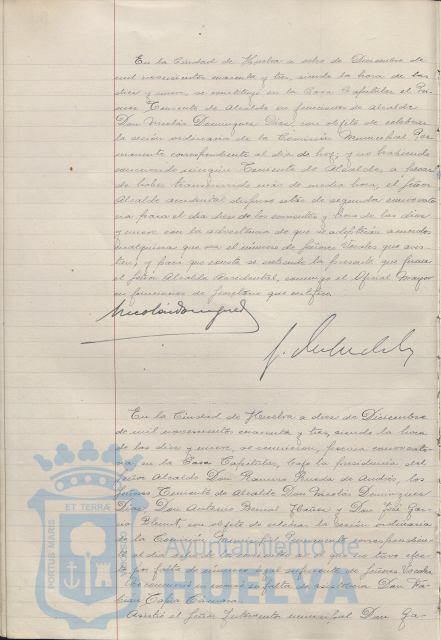 En la Ciudad de Huelva a ocho de Diciembre de
mil novecientos cuarenta y tres, siendo la hora de las
diez y nueve, se constituyó en la Casa Capitular el Pri-
mer Teniente de Alcalde en funciones de Alcalde
Don Nicolás Dominguez Diaz, con objeto de celebrar
la sesión ordinaria de la Comisión Municipal Per-
manente correspondiente al dia de hoy, y no habiendo
concurrido ningún Teniente de Alcalde, a pesar
de haber transcurrido más de media hora, el Señor
Alcalde accidental dispuso citar de segunda convocato-
ria para el dia diez de los corrientes y hora de las diez
y nueve con la advertencia de que se adoptarán acuerdos
cualquiera que sea el número de Señores Vocales que asis-
tan; y para que conste se extiende la presente que firma
el Señor Alcalde Accidental, conmigo el Oficial Mayor
en funciones de Secretario que certifico.
En la Ciudad de Huelva a diez de Diciembre
de mil novecientos cuarenta y tres, siendo la hora
de las diez y nueve, se reunieron, previa convocato-
ria, en la Casa Capitular, bajo la presidencia del
Señor Alcalde Don Ramiro de los
Señores Teniente de Alcalde Don Nicolás Dominguez
Diaz, Don Antonio Bernal y Don José Gar-
con objeto de celebrar la sesión ordinaria
de la Comisión Municipal Permanente correspondiente
al dia que no tuvo efec-
to por falta de número suficiente de Señores Vocales
falta de asistencia Don
Asistió el Señor Interventor municipal Don Ga-
PORTUS MARIS ET TERRÆ
Ayuntamiento de
HUELVA